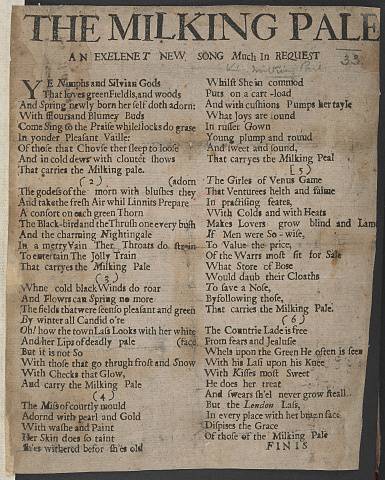 THE MILKING PALE
AN EXELENET NEW SONG Much In REQUEST
33
YE Nimphs and Silvian Gods
That loves green Fieldis, and woods
And Spring newly born her self doth adorn:
With flloursand Blumey Buds
Come Sing to the Praise whilesflocks do grase
In yonder Pleasant Vaille:
Of those that Chovse ther sleep to loose
And in cold dews with clouter shows
That carries the Milking pale.
( 2 ) (adorn
The godess of the morn with blushes they
And take the fresh Air whil Linnits Prepare
A consort on each green Thorn
The Black-bird and the Thrush one every bush
And the charming Nightingale
In a merry Vain Ther Throats do strein
To entertain The Jolly Train
That carryes the Milking Pale
( 3 )
Whne cold black Winds do roar
And Flowrs can Spring no more
The fields that were seen so pleasant and green
By winter all Candid o're
Oh! how the town Lass Looks with her white
And her Lips of deadly pale (face
But it is not So
With those that go thrugh frost and Snow
With Cheeks that Glow,
And carry the Milking Pale
( 4 )
The Miss of courtly mould
Adornd with pearl and Gold
With washe and Paint
Her Skin does so taint
Shes withered befor shes old
Whilst She in commod
Puts on a cart-load
And with cushions Pumps her tayle
What Joys are found
In russet Gown
Young plump and round
And sweet and sound,
That carryes the Milking Peal
[ 5 ]
The Girles of Venus Game
That Ventures helth and faime
In practising feates,
VVith Colds and with Heats
Makes Lovers grow blind and Lame
If Men were So-wise,
To Value the price,
Of the Warrs most fit for Sale
What Store of Bose
Would daub their Cloaths
To save a Nose,
By following those,
That carries the Milking Pale.
( 6
The Countrie Lade is free
From fears and Jealuse
Wheh upon the Green He often is seen
With his Lass upon his Knee
With Kisses most Sweet
He does her treat
And swears sh'el never grow steall..
But the London Lass,
In every place with her brazn face
Dispises the Grace
Of those of the Milking Pale
FINIS